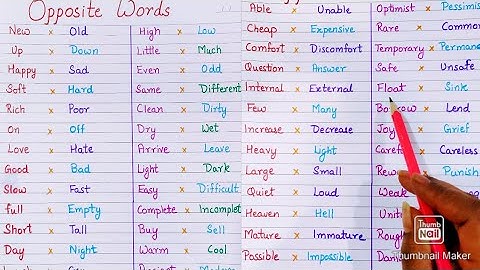 Opposite Words
New x Old
Up x Down
Happy x Sad
Soft x Hard
Rich x Poor
On x Off
Love x Hate
Good x Bad
Slow x Fast
full x Empty
Short x Tall
Day x Night
High x Low
Little x Much
Even x Odd
Same x Different
Clean x Dirty
Dry x Wet
Arrive x Leave
Light x Dark
Easy x Difficult
Complete x Incomplet
Buy x Sell
Warm x Cool
Able x Unable
Cheap x Expensive
Comfort x Discomfort
Question x Answer
Internal x External
Few x Many
Increase x Decrease
Heavy x Light
Large x Small
Quiet x Loud
Heaven x Hell
Mature x Immature
Possible x Impossible
Optimist x Pessimis
Rare x Common
Temporary x Permane
Safe x Unsafe
Float x Sink
x Lend
Joy x Grief
Caref x Careless
Rew Punish
Weak
Unit
Rough
Dan
Thumb
Nail
Thumbnail Maker